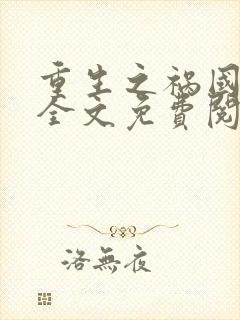 重生之禍國
全文免費閱
洛無夜